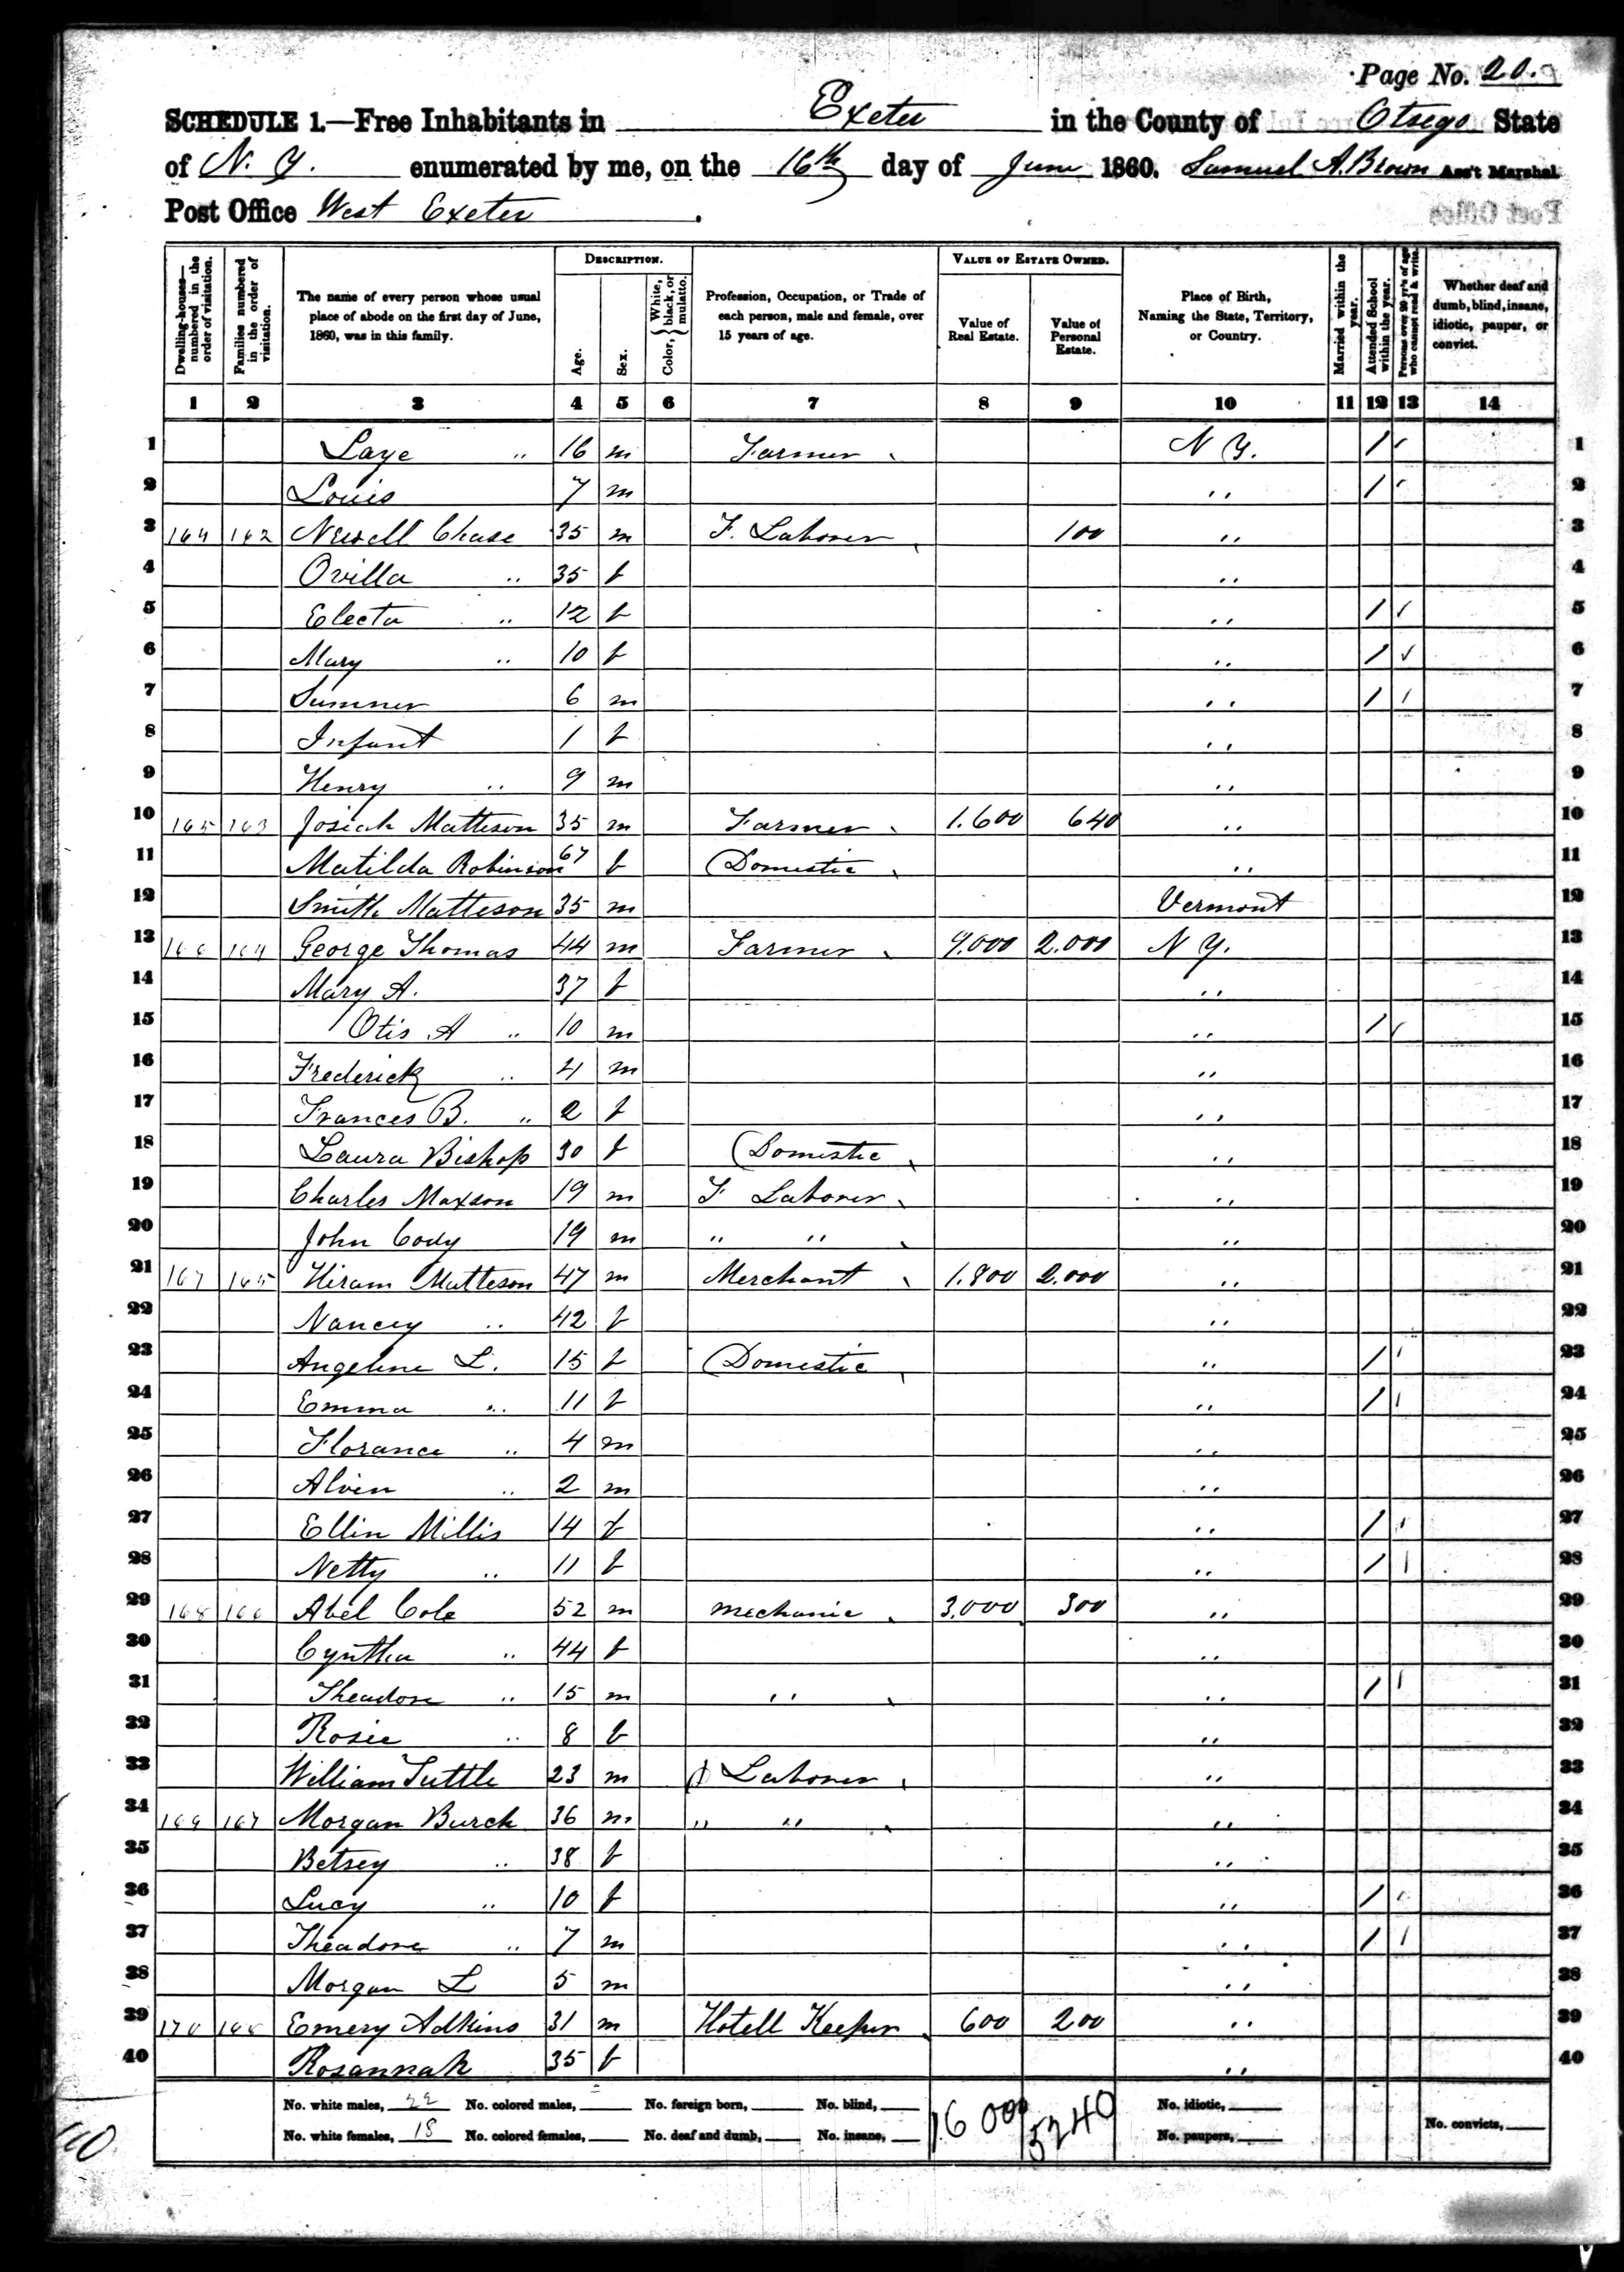 Page No. 20.
SCHEDULE 1.—Free Inhabitants in Exeter in the County of Otsego State
of N. Y. enumerated by me, on the 16th day of June 1860. Samuel A. Brown Ass't Marshal
Post Office West Exeter.
Dwelling-houses—numbered in the order of visitation.
Families numbered in the order of visitation.
The name of every person whose usual place of abode on the first day of June, 1860, was in this family.
DESCRIPTION.
Age.
Sex.
Color, { White, black, or mulatto.
Profession, Occupation, or Trade of each person, male and female, over 15 years of age.
VALUE OF ESTATE OWNED.
Value of Real Estate.
Value of Personal Estate.
Place of Birth, Naming the State, Territory, or Country.
Married within the year.
Attended School within the year.
Persons over 20 yr's of age who cannot read & write.
Whether deaf and dumb, blind, insane, idiotic, pauper, or convict.
1 2 3 4 5 6 7 8 9 10 11 12 13 14
1 Laye " 16 m Farmer N Y. / / 1
2 Louis 7 m " / / 2
3 164 162 Newell Chase 35 m F. Laborer 100 " 3
4 Ovilla " 35 f " 4
5 Electa " 12 f " / / 5
6 Mary " 10 f " / / 6
7 Sumner 6 m " / / 7
8 Infant 1 f " 8
9 Henry " 9 m " 9
10 165 163 Josiah Matteson 35 m Farmer 1.600 640 " 10
11 Matilda Robinson 67 f Domestic " 11
12 Smith Matteson 35 m Vermont 12
13 166 164 George Thomas 44 m Farmer 9.000 2.000 N Y. 13
14 Mary A. 37 f " 14
15 Otis A " 10 m " / / 15
16 Frederick " 4 m " 16
17 Frances B. " 2 f " 17
18 Laura Bishop 30 f Domestic " 18
19 Charles Maxson 19 m F Laborer " 19
20 John Cody 19 m " " " 20
21 167 165 Hiram Matteson 47 m Merchant 1.800 2.000 " 21
22 Nancy " 42 f " 22
23 Angeline L. 15 f Domestic " / / 23
24 Emma " 11 f " / / 24
25 Florance " 4 m " 25
26 Alvin " 2 m " 26
27 Ellin Millis 14 f " / / 27
28 Netty " 11 f " / / 28
29 168 166 Abel Cole 52 m mechanic 3.000 300 " 29
30 Cynthia " 44 f " 30
31 Theadore " 15 m " " / / 31
32 Rosie " 8 f " 32
33 William Tuttle 23 m Laborer " 33
34 169 167 Morgan Burch 36 m " " " 34
35 Betsey " 38 f " 35
36 Lucy " 10 f " / / 36
37 Theadore " 7 m " / / 37
38 Morgan L 5 m " 38
39 170 168 Emery Adkins 31 m Hotell Keeper 600 200 " 39
40 Rosannah 35 f " 40
No. white males, 22 No. colored males, No. foreign born, No. blind, 16 000 5240 No. idiotic,
No. white females, 18 No. colored females, No. deaf and dumb, No. insane, No. paupers, No. convicts,